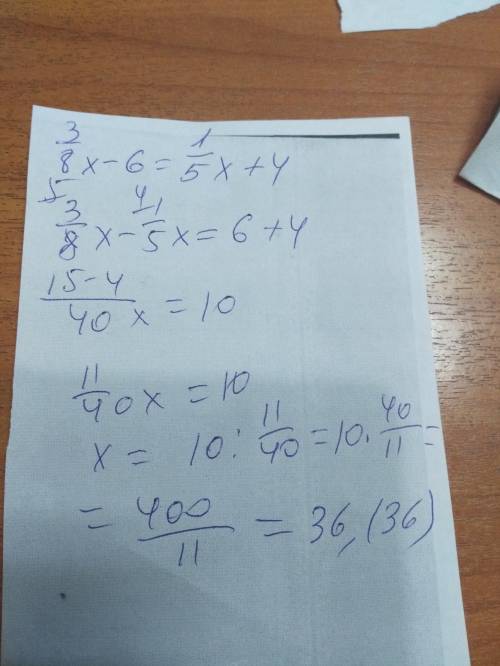 3/8 x - 6 = 1/5 x + 4
5 3/8 x - 4 1/5 x = 6 + 4
15-4/40 x = 10
11/40 x = 10
x = 10 : 11/40 = 10 · 40/11 =
= 400/11 = 36,(36)